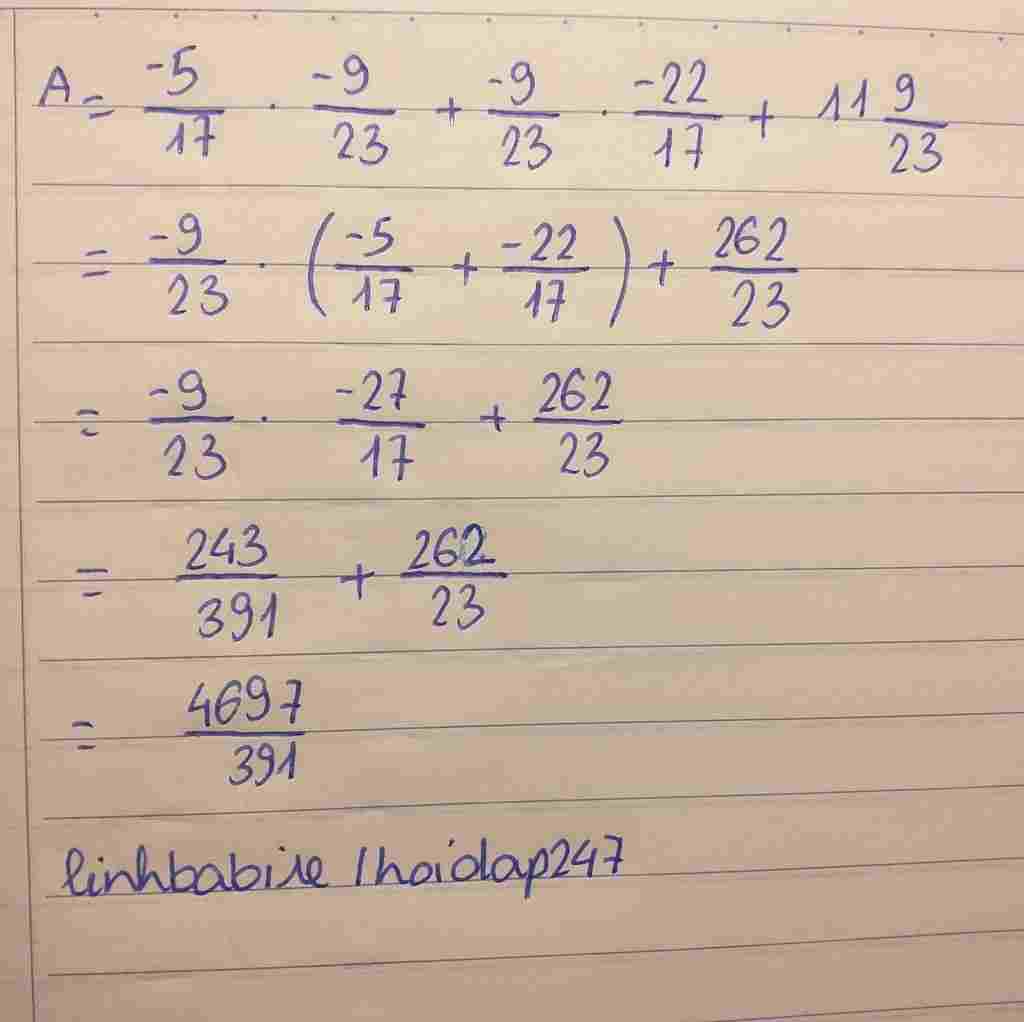 A = -5/17 . -9/23 + -9/23 . -22/17 + 11 9/23
= -9/23 . (-5/17 + -22/17) + 262/23
= -9/23 . -27/17 + 262/23
= 243/391 + 262/23
= 4697/391
linhbabixe / hoidap247